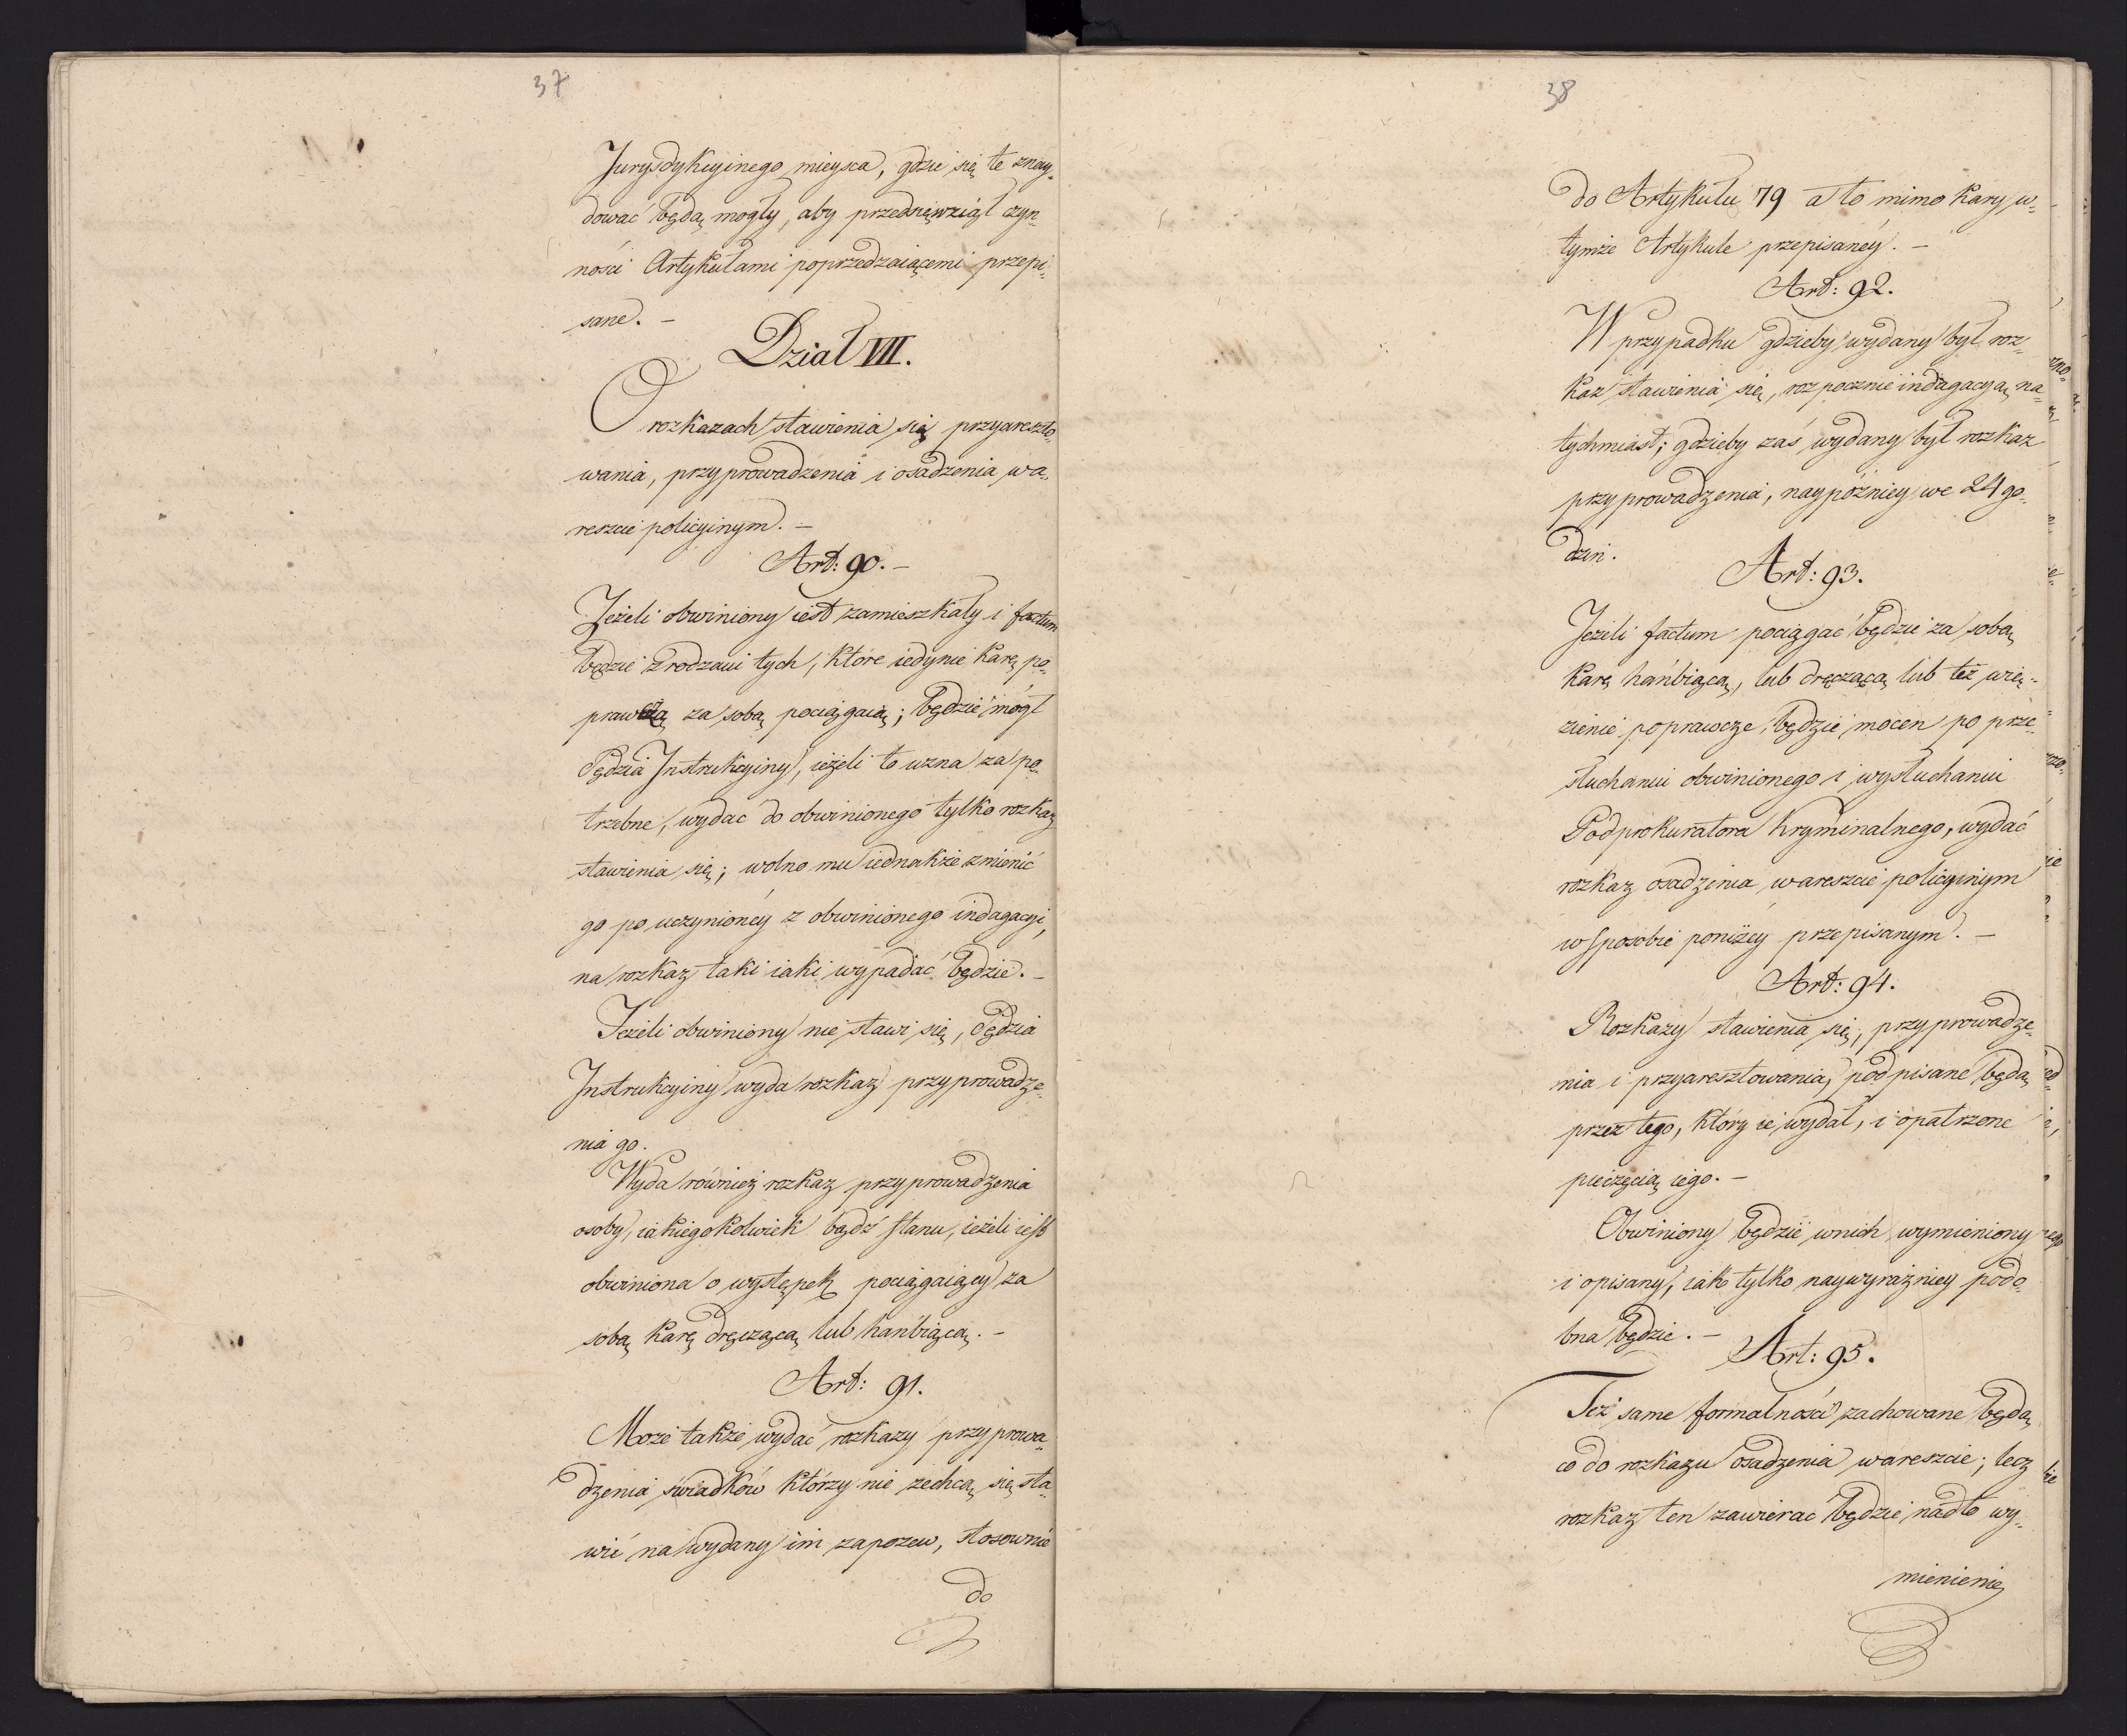 37
Jurysdykcyinego mieysca, gdzie się te znay„
dować będą mogły, aby przedsięwziął czyn„
ności Artykułami poprzedzaiącemi przepi„
sane. –
Dział VII.
O rozkazach stawienia się przyareszto„
wania, przyprowadzenia i osadzenia w a„
reszcie policyinym. –
Art: 90. –
Jeżeli obwiniony iest zamieszkały i factum
będzie z rodzaiu tych, które iedynie karę po„
prawczą za sobą pociągaią; będzie mógł
Sędzia Instrukcyiny, ieżeli to uzna za po„
trzebne, wydać do obwinionego tylko rozkaz
stawienia się; wolno mu iednakże zmienić
go po uczynionéy z obwinionego indagacyi,
na rozkaz taki iaki wypadać będzie. –
Jeżeli obwiniony nie stawi się, Sędzia
Instrukcyiny wyda rozkaz przyprowadze„
nia go.
Wyda również rozkaz przyprowadzenia
osoby, iakiegokolwiek bądź stanu, ieżeli iest
obwiniona o występek pociągaiący za
sobą karę dręczącą lub hańbiącą. –
Art: 91.
Może także wydać rozkazy przyprowa„
dzenia świadków którzy nie zechcą się sta„
wić na wydany im zapozew, stosownie
do
38
do Artykułu 79 a to mimo kary w„
tymże Artykule przepisanéy. –
Art: 92.
W przypadku gdzieby wydany był roz„
kaz stawienia się, rozpocznie indagacyą na„
tychmiast; gdzieby zaś wydany był rozkaz
przyprowadzenia, naypóźniey we 24 go„
dzin.
Art: 93.
Jeżeli factum pociągać będzie za sobą
karę hańbiącą, lub dręczącą lub też wię„
zienie poprawcze, będzie mocen po prze„
słuchaniu obwinionego i wysłuchaniu
Podprokuratora Kryminalnego, wydać
rozkaz osadzenia w areszcie policyinym
w sposobie poniżey przepisanym. –
Art: 94.
Rozkazy stawienia się, przyprowadze„
nia i przyaresztowania, podpisane będą
przez tego, który ie wydał, i opatrzone
pieczęcią iego. –
Obwiniony będzie w nich wymieniony
i opisany, iak tylko naywyraźniey podo„
bna będzie. –
Art: 95.
Też same formalności zachowane będą
co do rozkazu osadzenia w areszcie; lecz
rozkaz ten zawierać będzie nadto wy„
mienienie